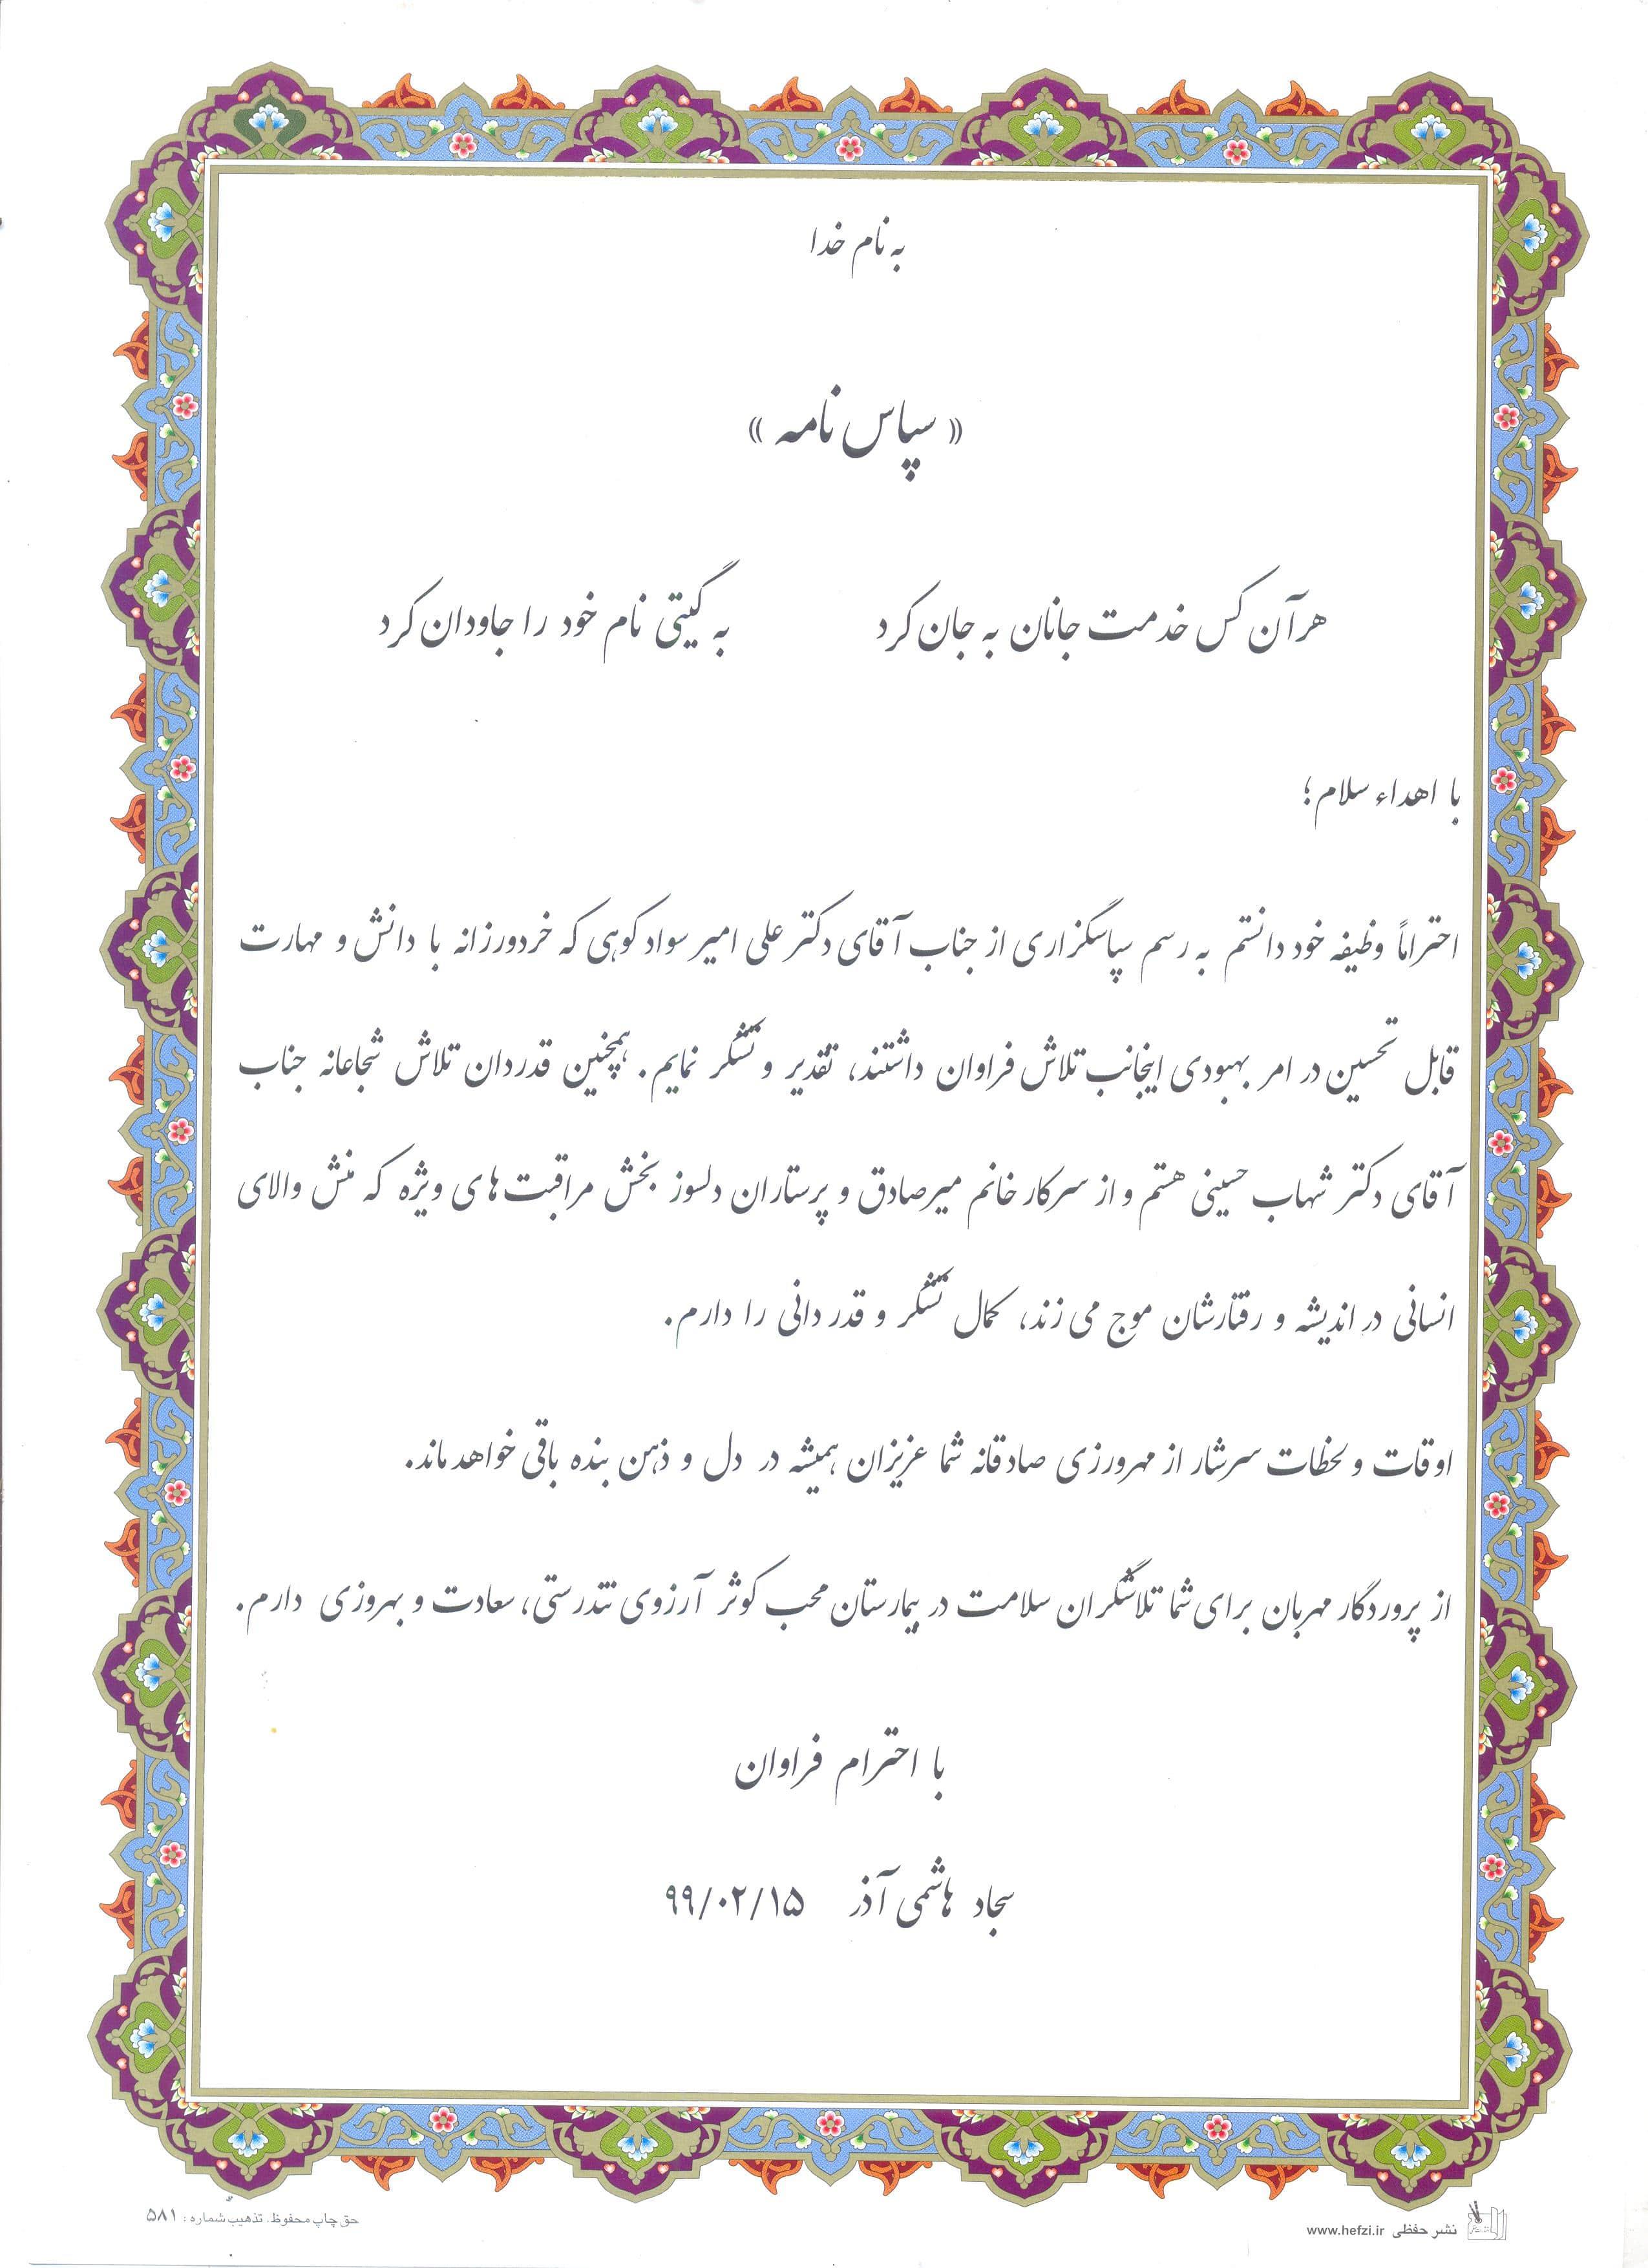 به نام خدا
« سپاس نامه »
هر آن کس خدمت جانان به جان کرد به گیتی نام خود را جاودان کرد
با اهداء سلام؛
احتراماً وظیفه خود دانستم به رسم سپاسگزاری از جناب آقای دکتر علی امیر سوادکوهی که خردورزانه با دانش و مهارت
قابل تحسین در امر بهبودی اینجانب تلاش فراوان داشتند، تقدیر و تشکر نمایم. همچنین قدردان تلاش شجاعانه جناب
آقای دکتر شهاب حسینی هستم و از سرکار خانم میرصادق و پرستاران دلسوز بخش مراقبت‌های ویژه که منش والای
انسانی در اندیشه و رفتارشان موج می زند، کمال تشکر و قدر دانی را دارم.
اوقات و لحظات سرشار از مهرورزی صادقانه شما عزیزان همیشه در دل و ذهن بنده باقی خواهد ماند.
از پروردگار مهربان برای شما تلاشگران سلامت در بیمارستان محب کوثر آرزوی تندرستی، سعادت و بهروزی دارم.
با احترام فراوان
سجاد هاشمی آذر ۹۹/۰۲/۱۵
نشر حفظی www.hefzi.ir
حق چاپ محفوظ. تذهیب شماره : ۵۸۱